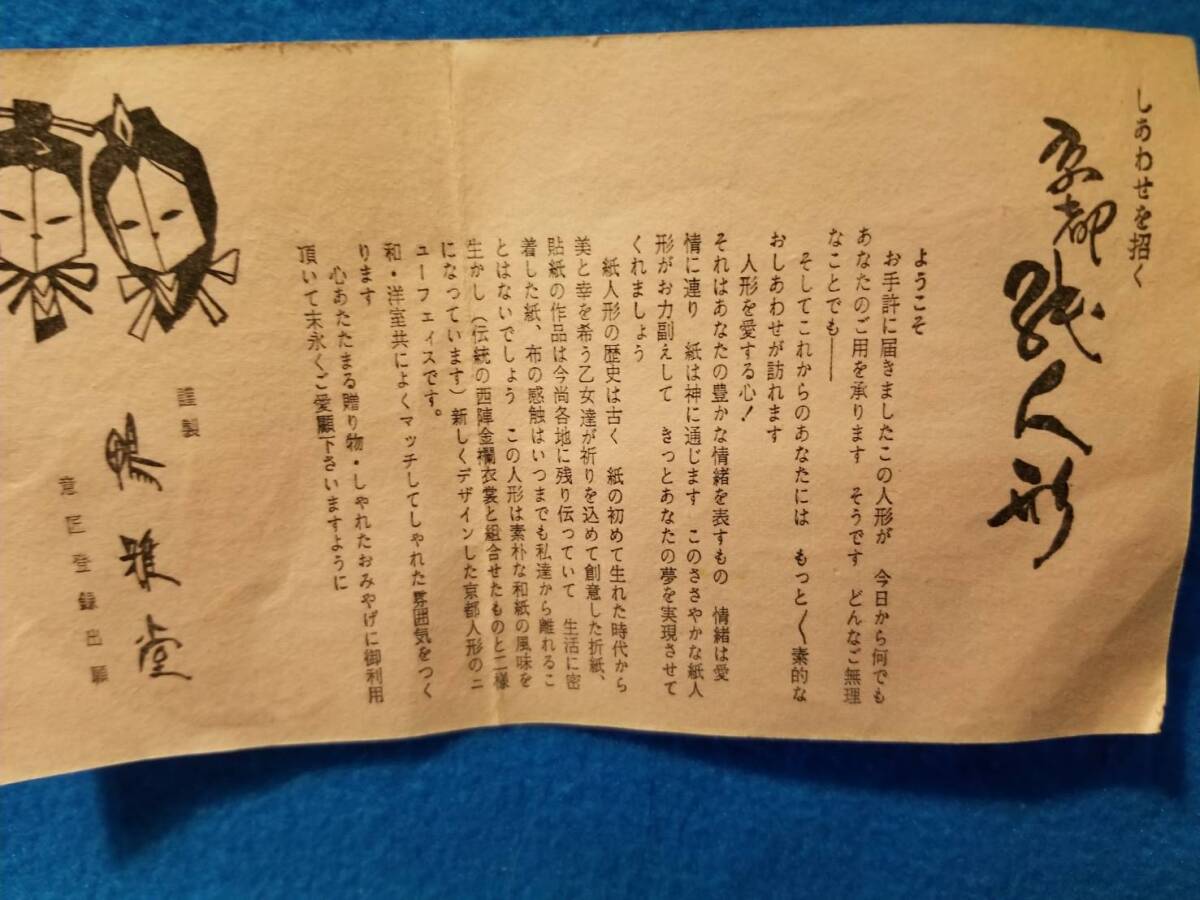 しあわせを招く
京都紙人形
ようこそ
お手許に届きましたこの人形が　今日から何でも
あなたのご用を承ります　そうです　どんなご無理
なことでも――
そしてこれからのあなたには　もっと〱素的な
おしあわせが訪れます
人形を愛する心！
それはあなたの豊かな情緒を表すもの　情緒は愛
情に連り　紙は神に通じます　このささやかな紙人
形がお力副えして　きっとあなたの夢を実現させて
くれましょう
紙人形の歴史は古く　紙の初めて生れた時代から
美と幸を希う乙女達が祈りを込めて創意した折紙、
貼紙の作品は今尚各地に残り伝っていて　生活に密
着した紙、布の感触はいつまでも私達から離れるこ
とはないでしょう　この人形は素朴な和紙の風味を
生かし（伝統の西陣金襴衣裳と組合せたものと二様
になっています）新しくデザインした京都人形のニ
ューフェイスです。
和・洋室共によくマッチしてしゃれた雰囲気をつく
ります
心あたたまる贈り物・しゃれたおみやげに御利用
頂いて末永くご愛顧下さいますように
謹製
暢雅堂
意匠登録出願